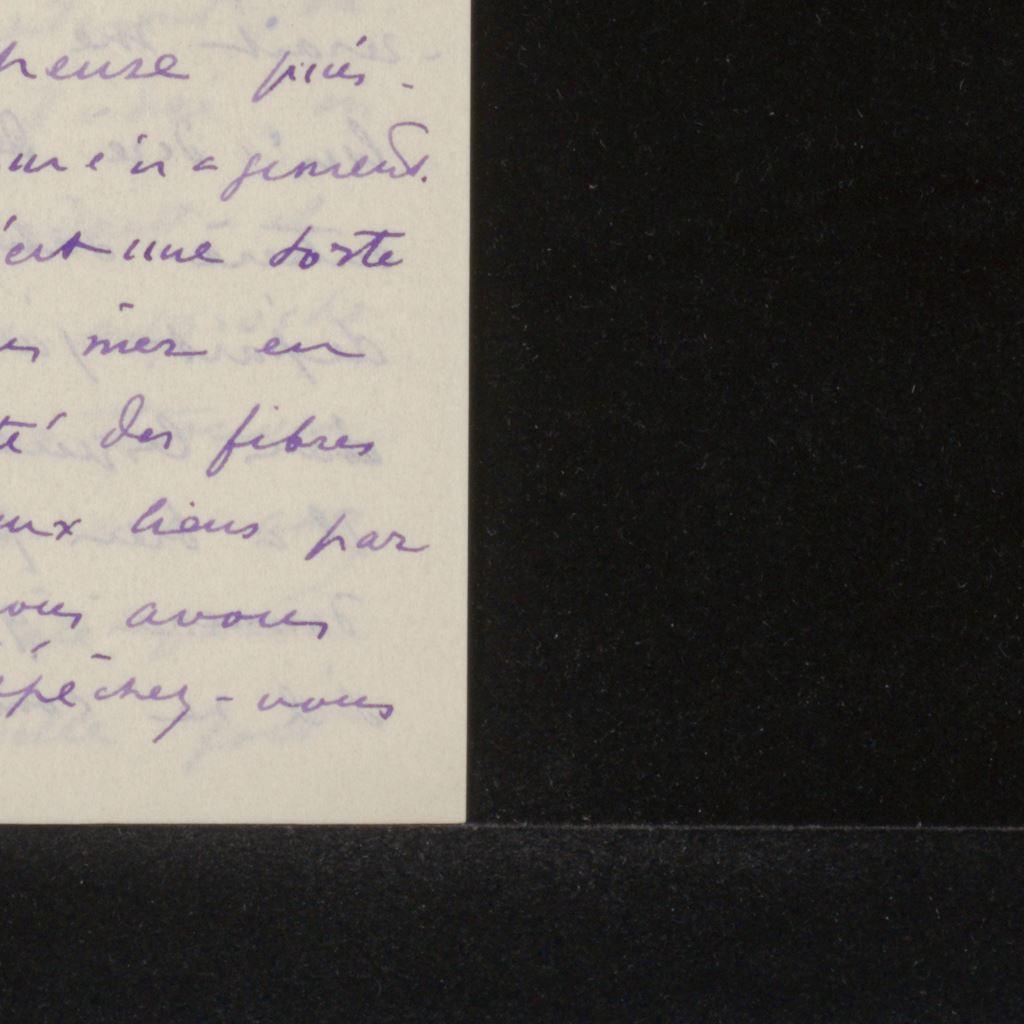 heuse puis-
ménagement.
'est une sorte
mer en
té des fibres
ux liens par
ous avons
épêchez-vous